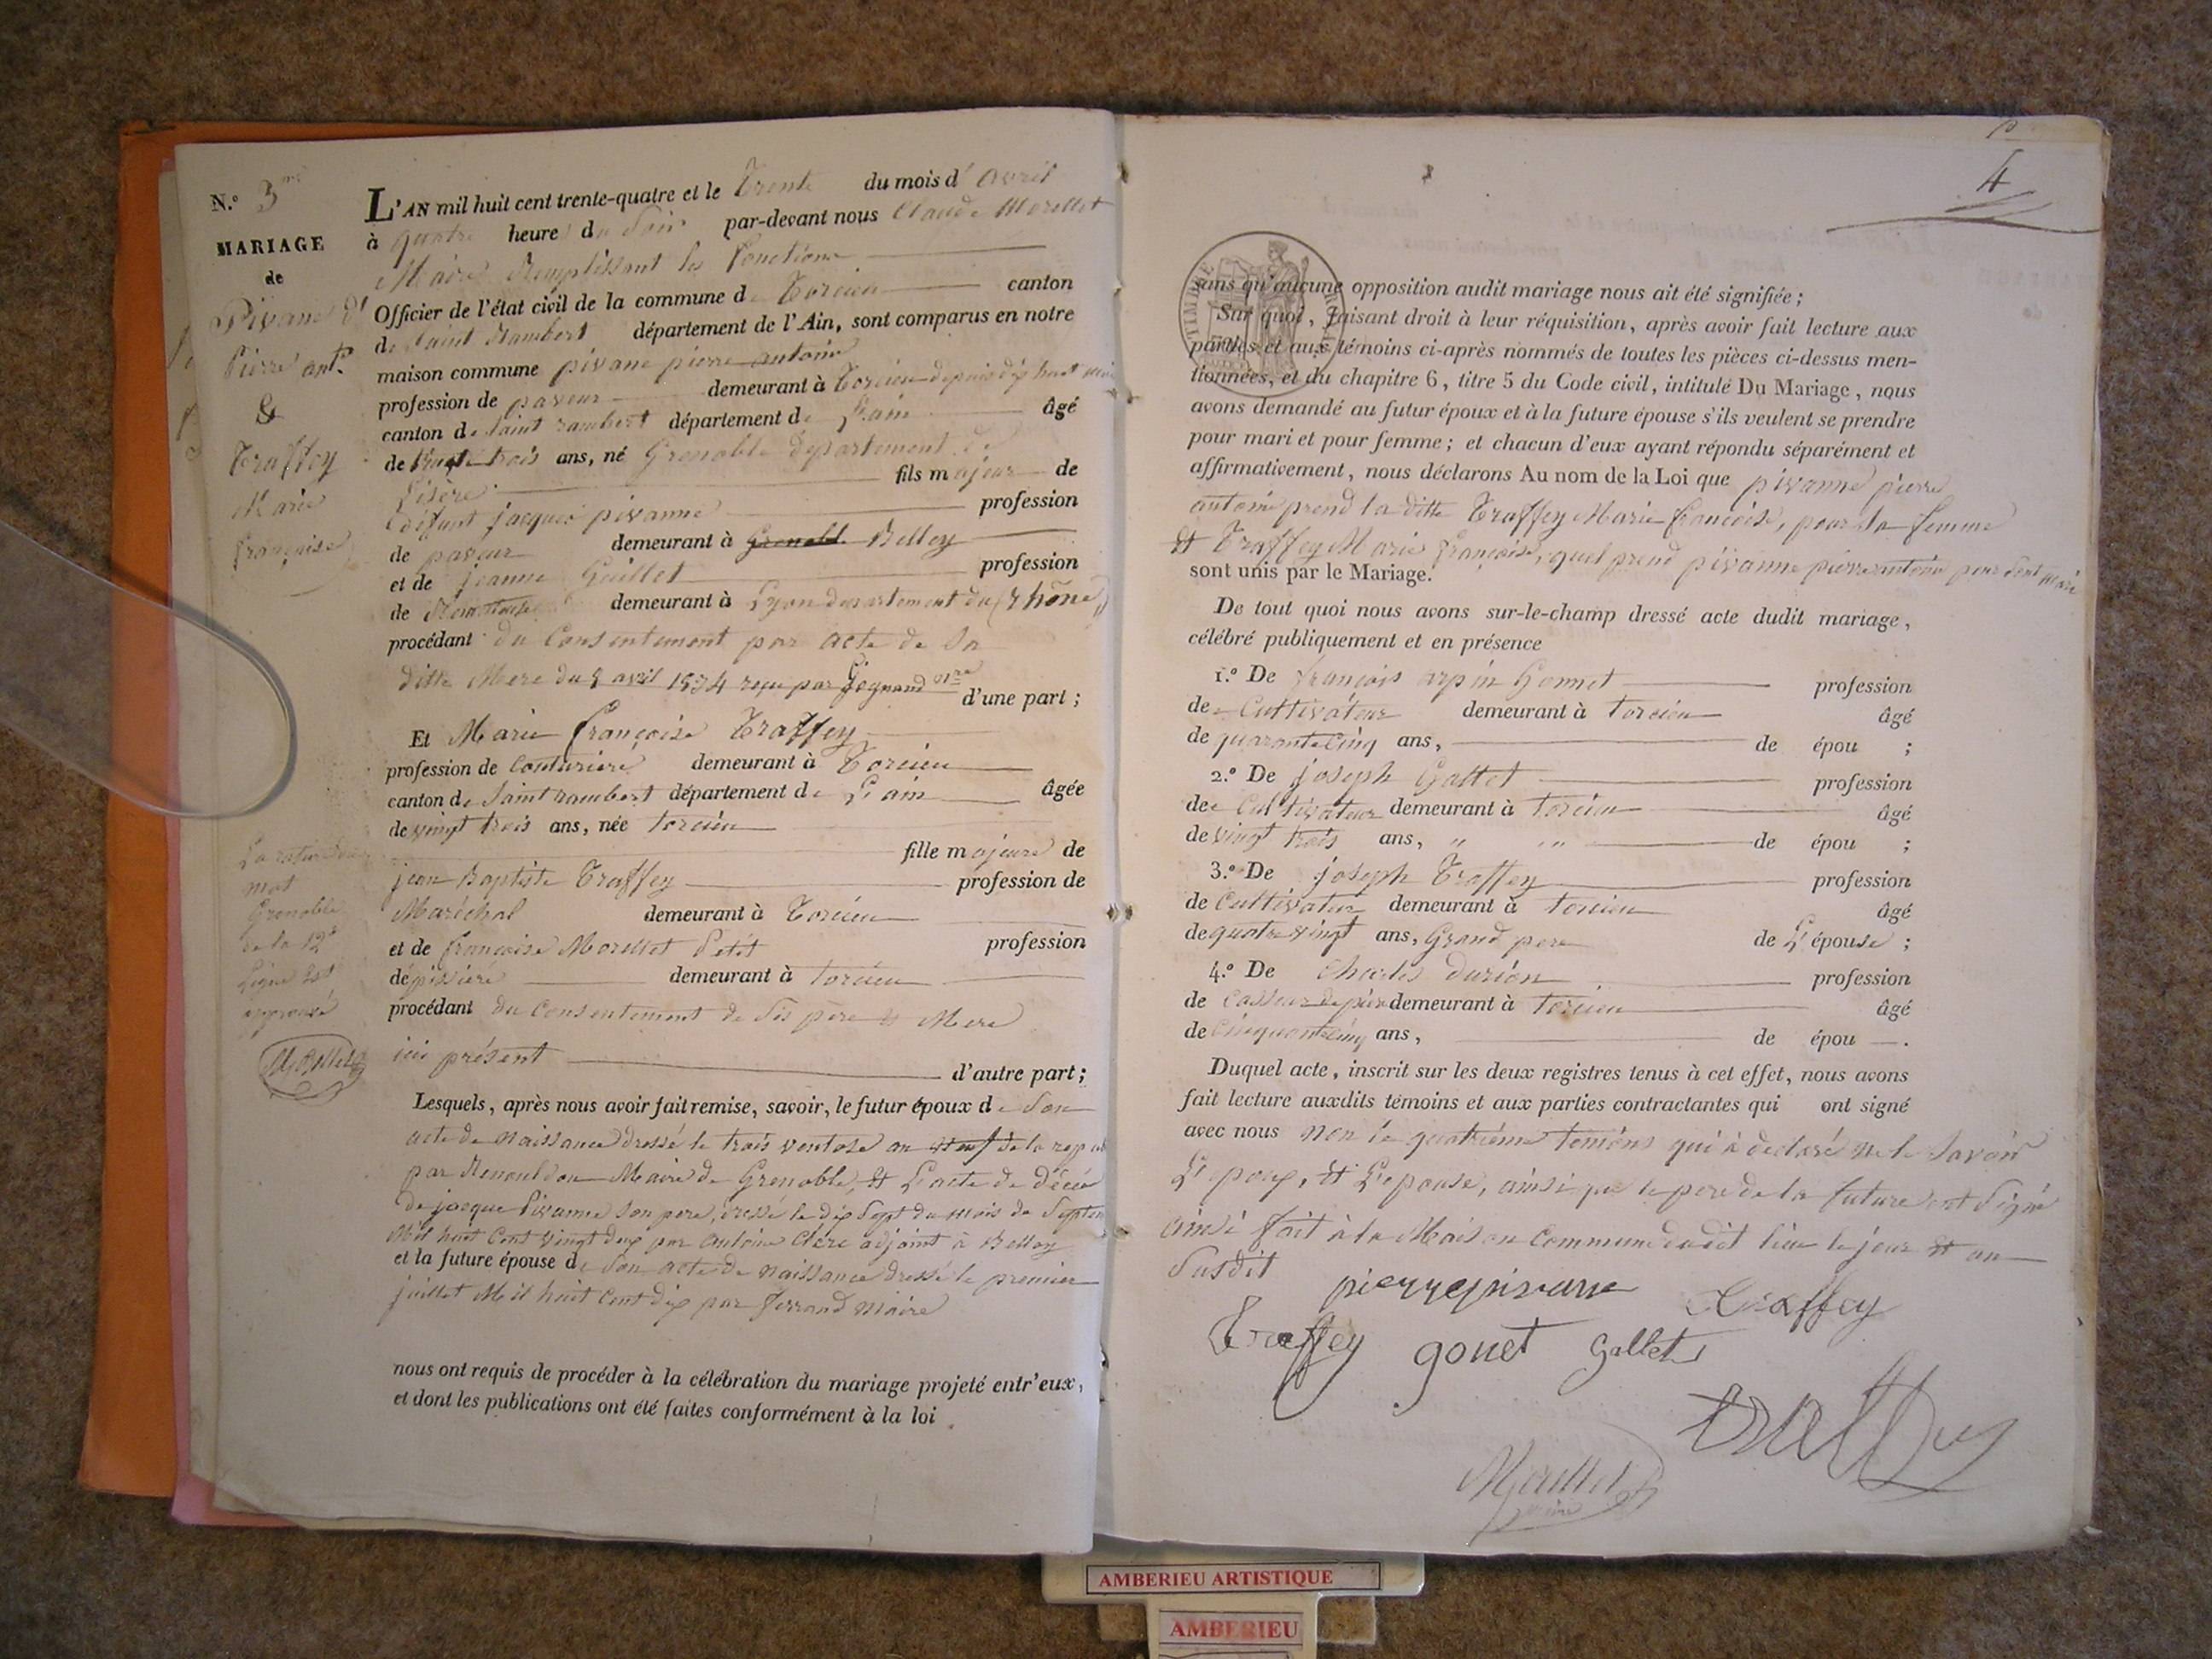 N.º 3me
MARIAGE
de
Pivanne
Pierre ant.e
&
Traffey
Marie
françoise
La rature du
mot
Grenoble
de la 12e
Ligne est
approuvé
Morellet
L'AN mil huit cent trente-quatre et le Trente du mois d'avril
à quatre heures du Soir par-devant nous Claude Morellet
Maire Remplissant les fonctions
Officier de l'état civil de la commune de Torcieu canton
de Saint Rambert département de l'Ain, sont comparus en notre
maison commune pivane pierre antoine
profession de paveur demeurant à Torcieu depuis dix huit mois
canton de Saint rambert département de L'ain âgé
de trente trois ans, né Grenoble département de
L'isère fils majeur de
défunt jacques pivanne profession
de paveur demeurant à Grenoble Belley
et de jeanne Guillet profession
de demeurant à Lyon département du (rhône)
procédant du Consentement par acte de Sa
ditte Mere du 8 avril 1834 reçu par nre d'une part ;
Et Marie françoise Traffey
profession de Couturiere demeurant à Torcieu
canton de Saint rambert département de L'ain âgée
de vingt trois ans, née torcieu
fille majeure de
jean Baptiste Traffey profession de
Maréchal demeurant à Torcieu
et de françoise Morellet Petit profession
demeurant à torcieu
procédant du Consentement de Ses père & Mere
ici présent d'autre part ;
Lesquels, après nous avoir fait remise, savoir, le futur époux de Son
acte de naissance dressé le trois ventose an neuf de la repub
par Renouldon Maire de Grenoble, & L'acte de décé
de jacque Pivanne son pere, dressé le dix Sept du mois de Septem
Mil huit Cent vingt deux par antoine Clerc adjoint à Belley
et la future épouse de Son acte de naissance dressé le premier
juillet Mil huit Cent dix par ferrand maire
nous ont requis de procéder à la célébration du mariage projeté entr'eux,
et dont les publications ont été faites conformément à la loi
4
TIMBRE ROYAL
sans qu'aucune opposition audit mariage nous ait été signifiée ;
Sur quoi, faisant droit à leur réquisition, après avoir fait lecture aux
parties et aux témoins ci-après nommés de toutes les pièces ci-dessus men-
tionnées, et du chapitre 6, titre 5 du Code civil, intitulé Du Mariage, nous
avons demandé au futur époux et à la future épouse s'ils veulent se prendre
pour mari et pour femme ; et chacun d'eux ayant répondu séparément et
affirmativement, nous déclarons Au nom de la Loi que pivanne pierre
antoine prend la ditte Traffey Marie françoise, pour sa femme
& Traffey Marie françoise, quel prend pivanne pierre antoine pour Son Mari
sont unis par le Mariage.
De tout quoi nous avons sur-le-champ dressé acte dudit mariage,
célébré publiquement et en présence
1.º De françois arpin Gonnet profession
de Cultivateur demeurant à torcieu âgé
de quarante cinq ans, de épou ;
2.º De joseph Gallet profession
de Cultivateur demeurant à torcieu âgé
de vingt trois ans, " " de épou ;
3.º De joseph Traffey profession
de Cultivateur demeurant à torcieu âgé
de quatre vingt ans, Grand pere de L'épouse ;
4.º De Charles durion profession
de Casseur de pierre demeurant à torcieu âgé
de Cinquante cinq ans, de épou .
Duquel acte, inscrit sur les deux registres tenus à cet effet, nous avons
fait lecture auxdits témoins et aux parties contractantes qui ont signé
avec nous non le quatrième temoins qui à declaré ne le Savoir
L'epoux, & L'epouse, ainsi que le pere de la future ont Signé
ainsi fait à la Maison Commune dudit lieu le jour & an
Susdit
pierre pivane Traffey
Traffey gonet Gallet
traffey
Morellet
maire
AMBERIEU ARTISTIQUE
AMBERIEU